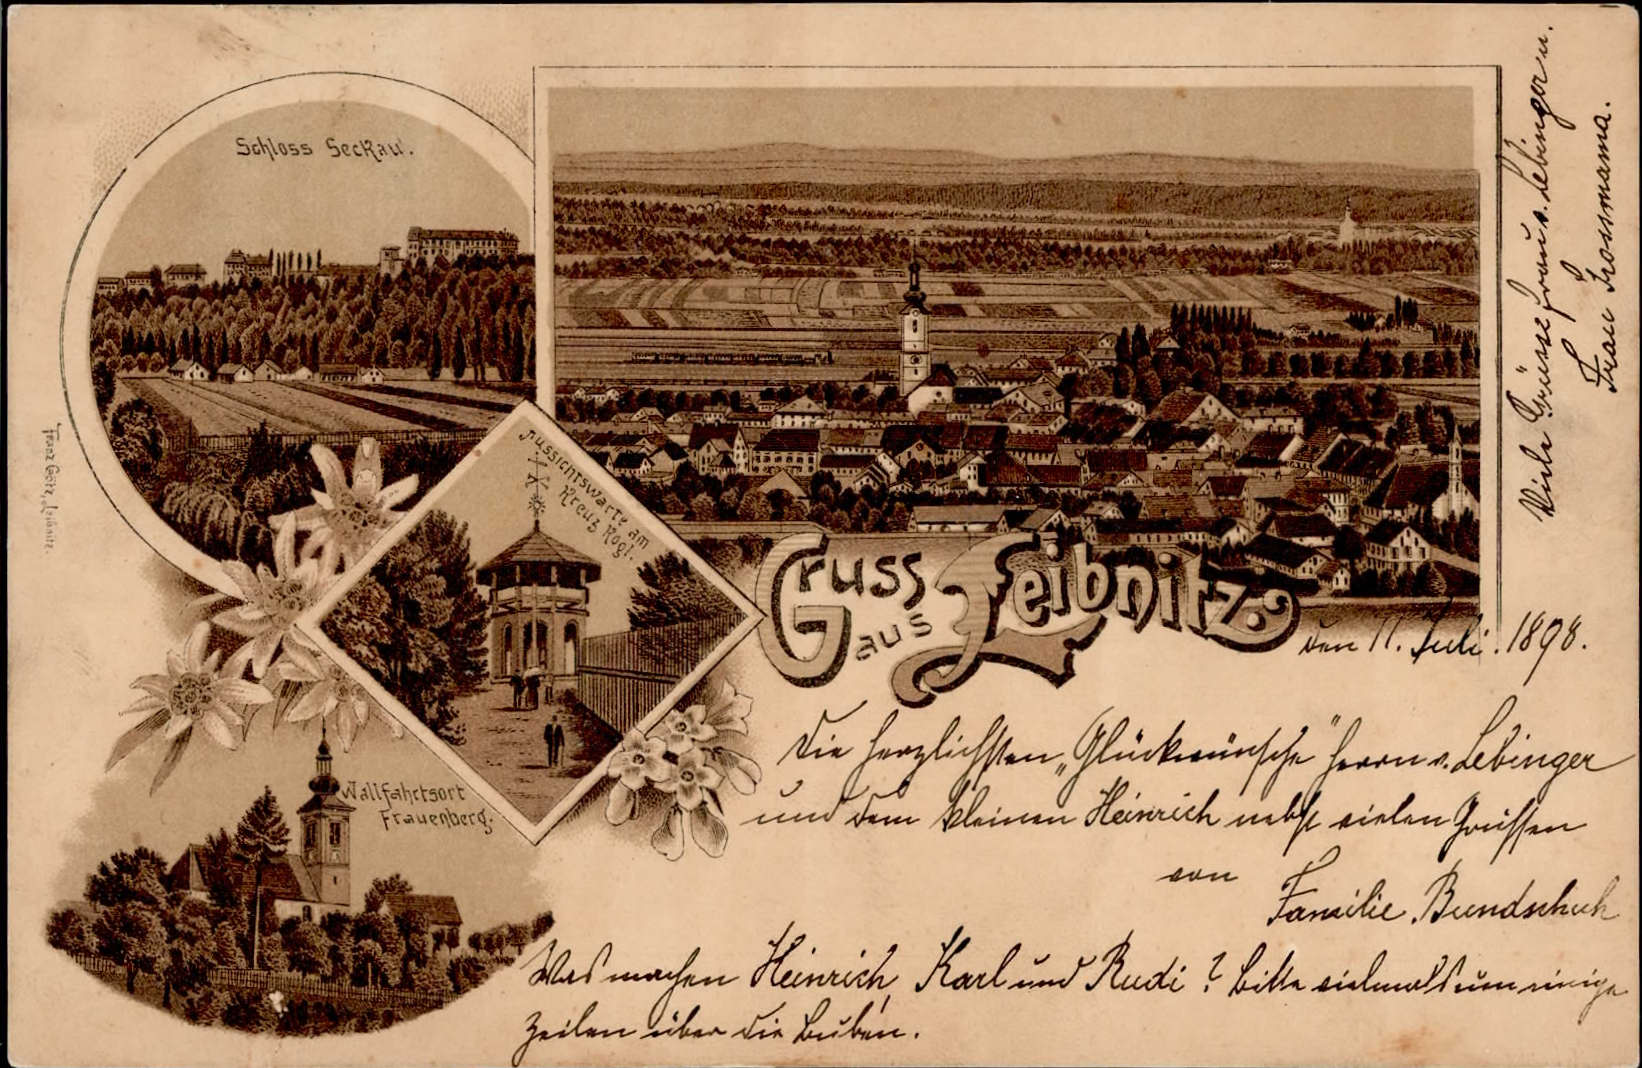 Schloss Seckau.
Aussichtswarte am
Kreuz Kogl.
Wallfahrtsort
Frauenberg.
Gruss
aus Leibnitz.
Franz Götz, Leibnitz.
den 11. Juli. 1898.
Die herzlichsten „Glückwünsche" Herrn v. Lebinger
und dem kleinen Heinrich nebst vielen Grüssen
von
Familie Bundschuh
Was machen Heinrich, Karl und Rudi? Bitte vielmals um einige
Zeilen über die Buben.
Viele Grüsse Frau v. Lebinger u.
Frau Grossmama.